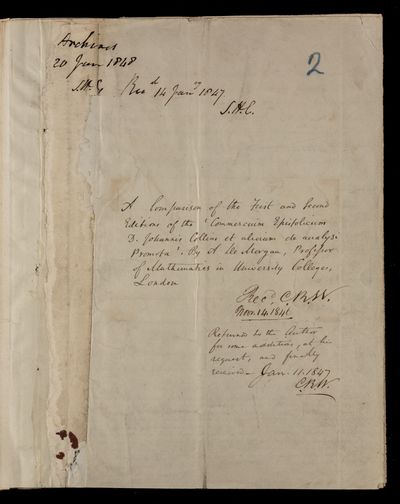 Archives
20 Jan 1848
S.H.C.
2
Recd 14 Jany 1847
S.H.C.
A Comparison of the First and Second
Editions of the 'Commercium Epistolicum
D. Johannis Collins et aliorum de analysi
Promota'. By A De Morgan, Professor
of Mathematics in University College,
London
Recd. C.R.W.
Nov. 14. 1846
Returned to the Author
for some additions, at his
request, and finally
received Jan. 11. 1847
C.R.W.